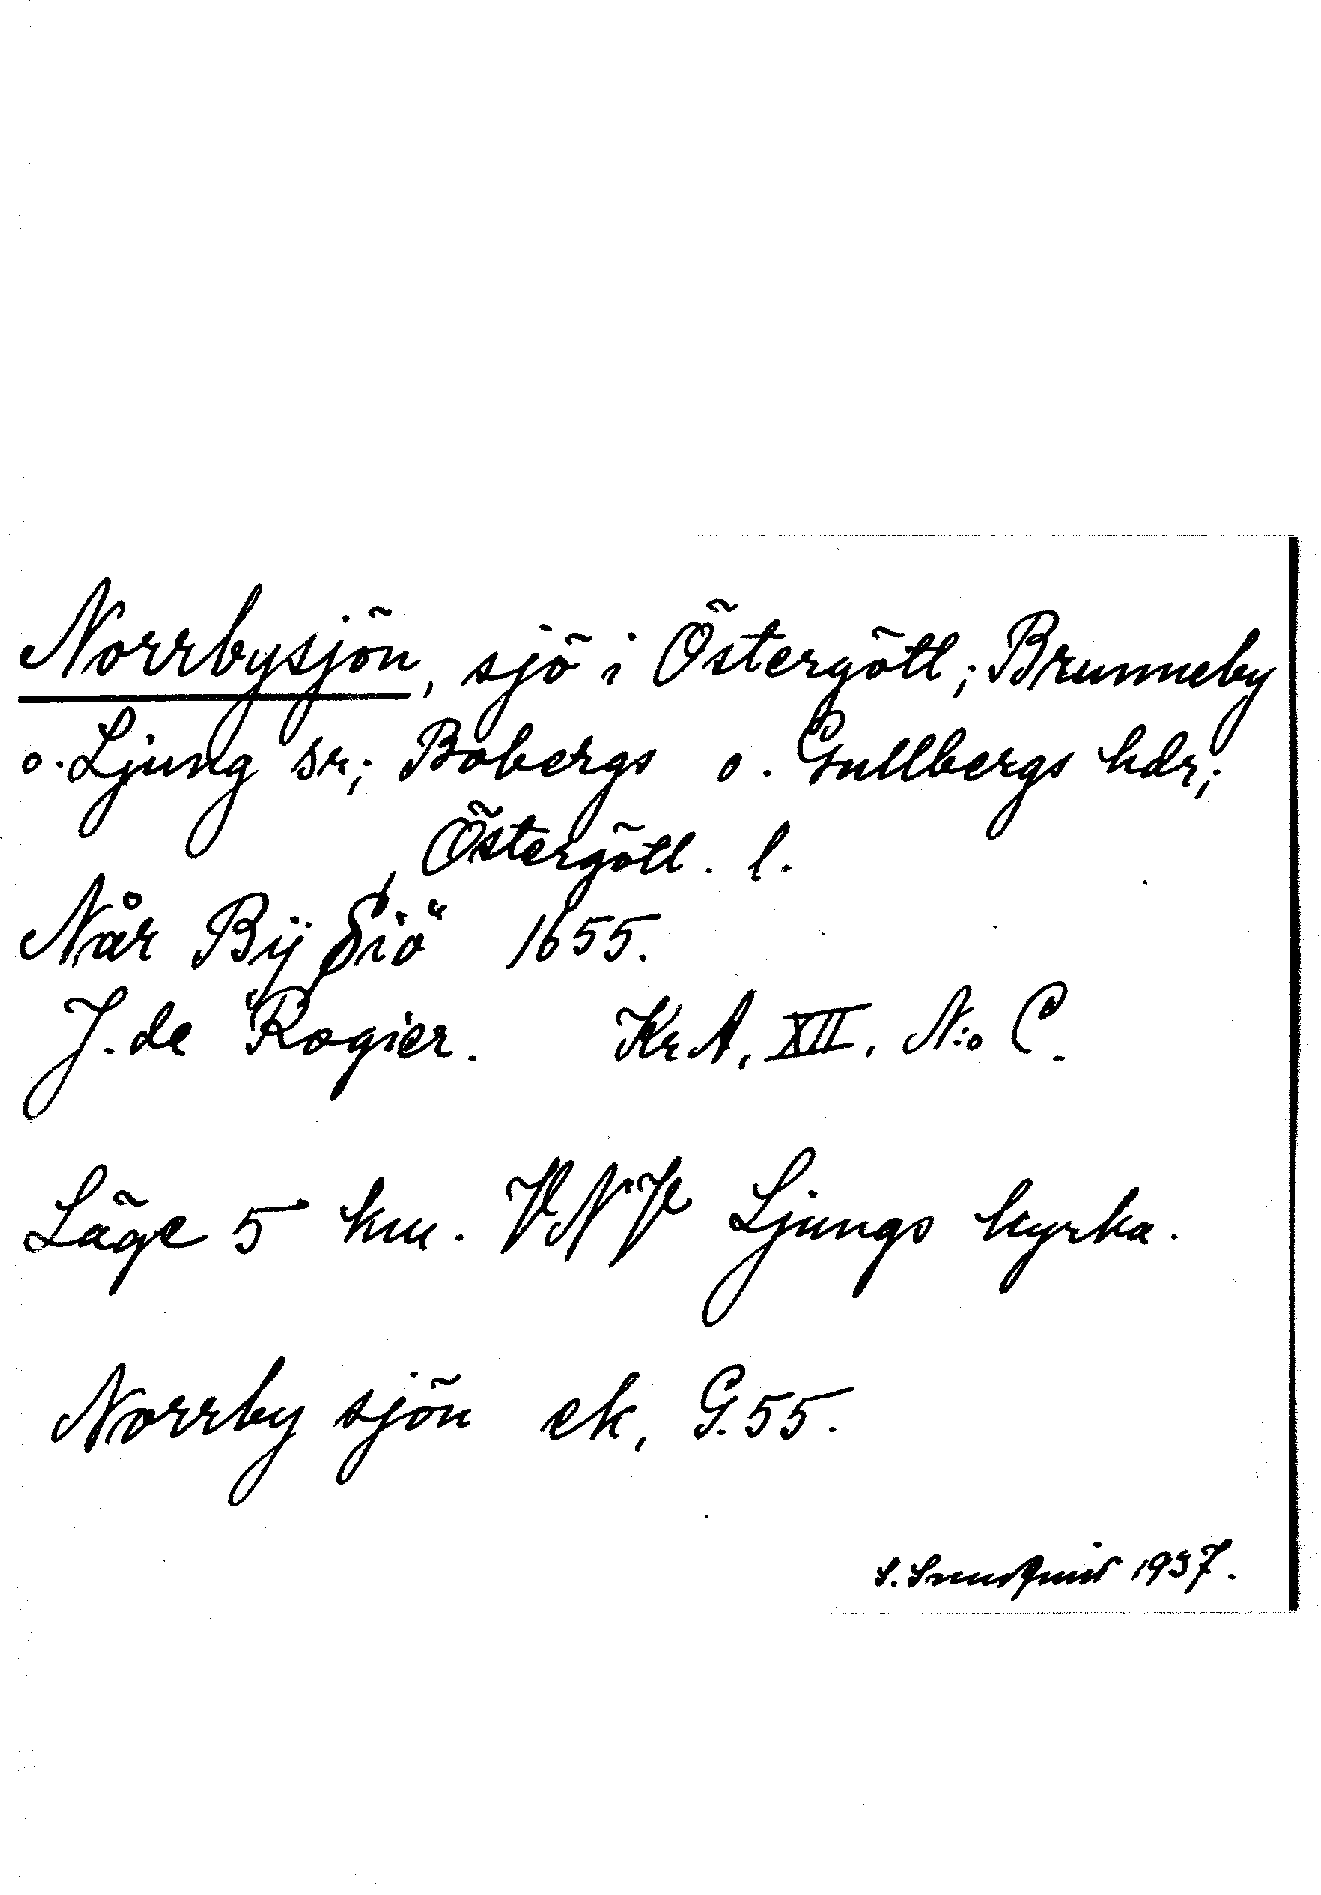 Norrbysjön, sjö i Östergötl; Brunneby
o. Ljung sr; Bobergs o. Gullbergs hdr;
Östergötl. l.
Når Bÿ Siö 1655.
J. de Rogier. Kr A, XII, N:o C.
Läge 5 km. VNV Ljungs kyrka.
Norrby sjön ek, G.55.
S. 1937.